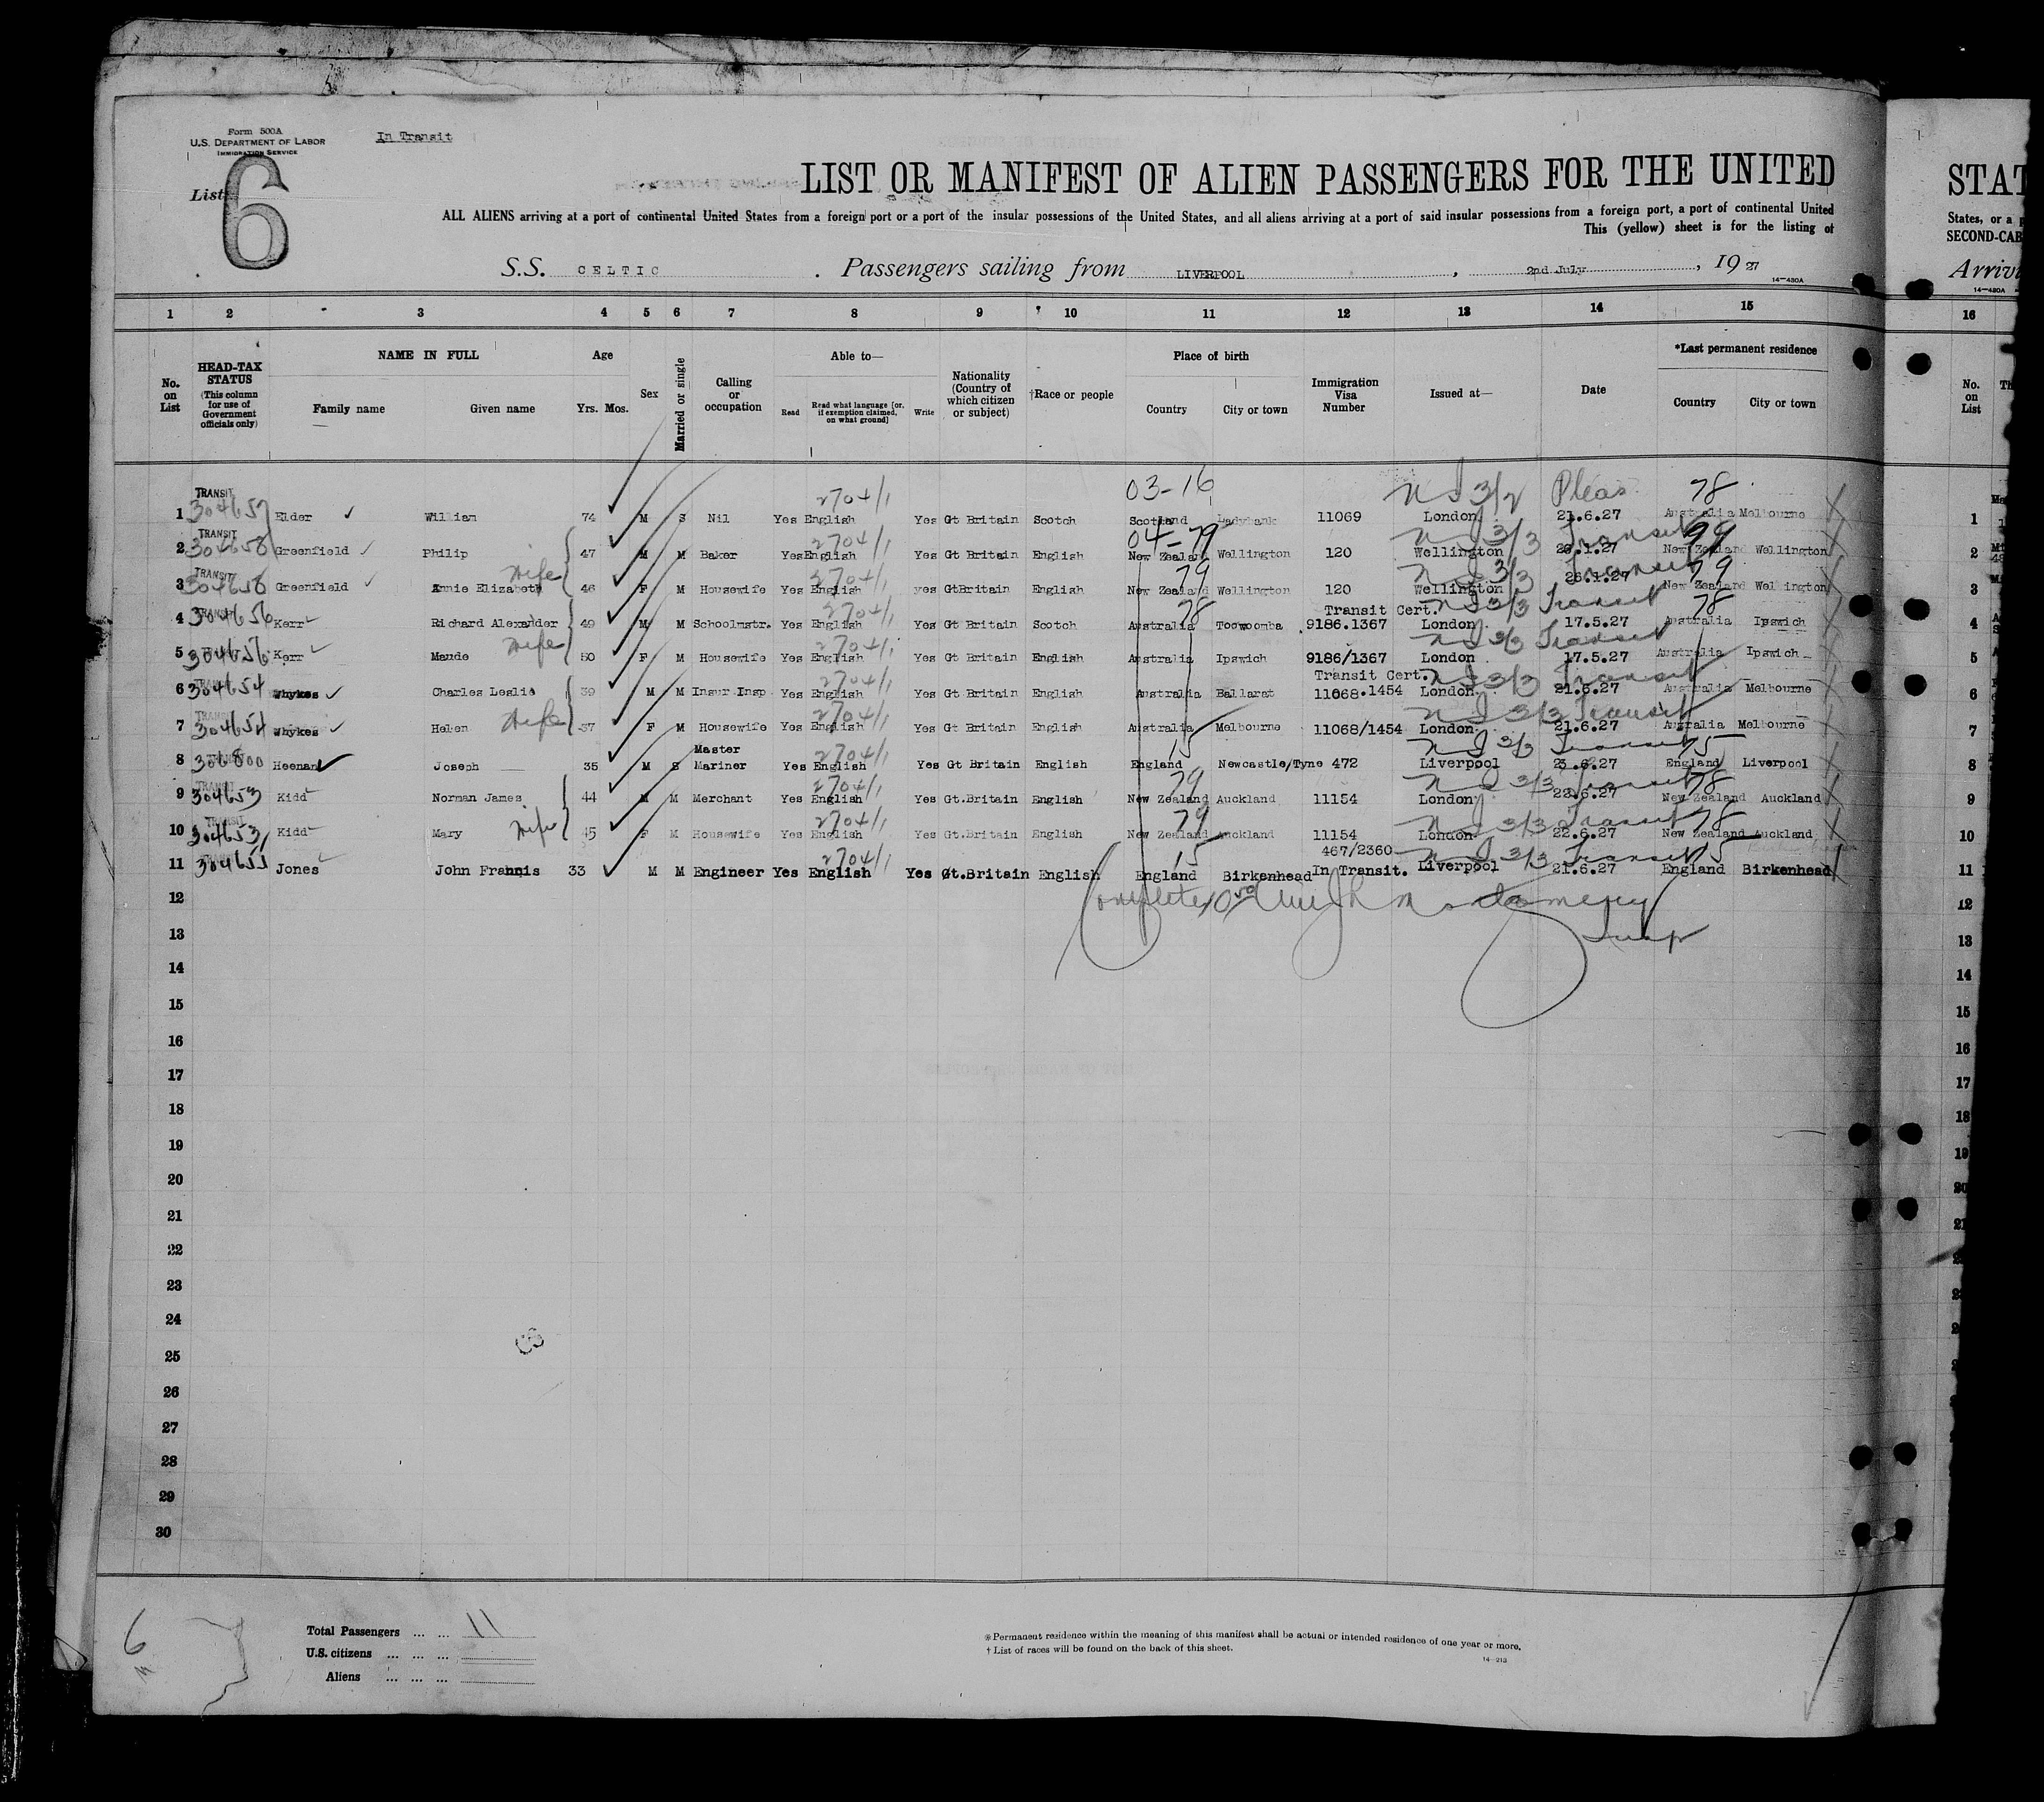 Form 500A
U.S. DEPARTMENT OF LABOR
IMMIGRATION SERVICE
In Transit
List 6
LIST OR MANIFEST OF ALIEN PASSENGERS FOR THE UNITED
STAT
ALL ALIENS arriving at a port of continental United States from a foreign port or a port of the insular possessions of the United States, and all aliens arriving at a port of said insular possessions from a foreign port, a port of continental United
States, or a p
This (yellow) sheet is for the listing of
SECOND-CAB
S.S. CELTIC . Passengers sailing from LIVERPOOL , 2nd July , 19 27
Arrivi
14-480A
14-480A
1 2 3 4 5 6 7 8 9 10 11 12 13 14 15 16
No. on List
HEAD-TAX STATUS (This column for use of Government officials only)
NAME IN FULL Family name Given name
Age Yrs. Mos.
Sex
Married or single
Calling or occupation
Able to— Read Read what language [or, if exemption claimed, on what ground] Write
Nationality (Country of which citizen or subject)
†Race or people
Place of birth Country City or town
Immigration Visa Number
Issued at—
Date
*Last permanent residence Country City or town
No. on List Th
2704/1 03-16 N I 3/2 Pleas 78
1 TRANSIT 304657 Elder William 74 M S Nil Yes English Yes Gt Britain Scotch Scotland Ladybank 11069 London 21.6.27 Australia Melbourne 1
2704/1 04-79 N I 3/3 Transit
2 TRANSIT 304658 Greenfield Philip 47 M M Baker Yes English Yes Gt Britain English New Zealand Wellington 120 Wellington 26.1.27 New Zealand Wellington 2
wife 2704/1 79 N I 3/3 Transit 79
3 TRANSIT 304658 Greenfield Annie Elizabeth 46 F M Housewife Yes English yes GtBritain English New Zealand Wellington 120 Wellington 26.1.27 New Zealand Wellington 3
2704/1 78 Transit Cert. N I 3/3 Transit 78
4 TRANSIT 304656 Kerr Richard Alexander 49 M M Schoolmstr. Yes English Yes Gt Britain Scotch Australia Toowoomba 9186.1367 London 17.5.27 Australia Ipswich 4
wife 2704/1 N I 3/3 Transit
5 304656 Kerr Maude 50 F M Housewife Yes English Yes Gt Britain English Australia Ipswich 9186/1367 London 17.5.27 Australia Ipswich 5
2704/1 Transit Cert. N I 3/3 Transit
6 304654 Whykes Charles Leslie 39 M M Insur Insp Yes English Yes Gt Britain English Australia Ballarat 11068.1454 London 21.6.27 Australia Melbourne 6
wife 2704/1 N I 3/3 Transit
7 304654 Whykes Helen 37 F M Housewife Yes English Yes Gt Britain English Australia Melbourne 11068/1454 London 21.6.27 Australia Melbourne 7
Master 2704/1 15 N I 3/3 Transit 15
8 306800 Heenan Joseph 35 M S Mariner Yes English Yes Gt Britain English England Newcastle/Tyne 472 Liverpool 23.6.27 England Liverpool 8
2704/1 79 N I 3/3 Transit 78
9 304653 Kidd Norman James 44 M M Merchant Yes English Yes Gt.Britain English New Zealand Auckland 11154 London 22.6.27 New Zealand Auckland 9
wife 2704/1 79 N I 3/3 Transit 78
10 TRANSIT 304653 Kidd Mary 45 F M Housewife Yes English Yes Gt.Britain English New Zealand Auckland 11154 London 22.6.27 New Zealand Auckland 10
2704/1 15 467/2360 N I 3/3 Transit 15
11 304655 Jones John Francis 33 M M Engineer Yes English Yes Gt.Britain English England Birkenhead In Transit. Liverpool 21.6.27 England Birkenhead 11
12 Montgomery 12
13 13
14 14
15 15
16 16
17 17
18 18
19 19
20 20
21 21
22
23
24
25
26
27
28
29
30
6
Total Passengers ... ... 11
U.S. citizens ... ... ...
Aliens ... ... ...
*Permanent residence within the meaning of this manifest shall be actual or intended residence of one year or more.
† List of races will be found on the back of this sheet.
14-213